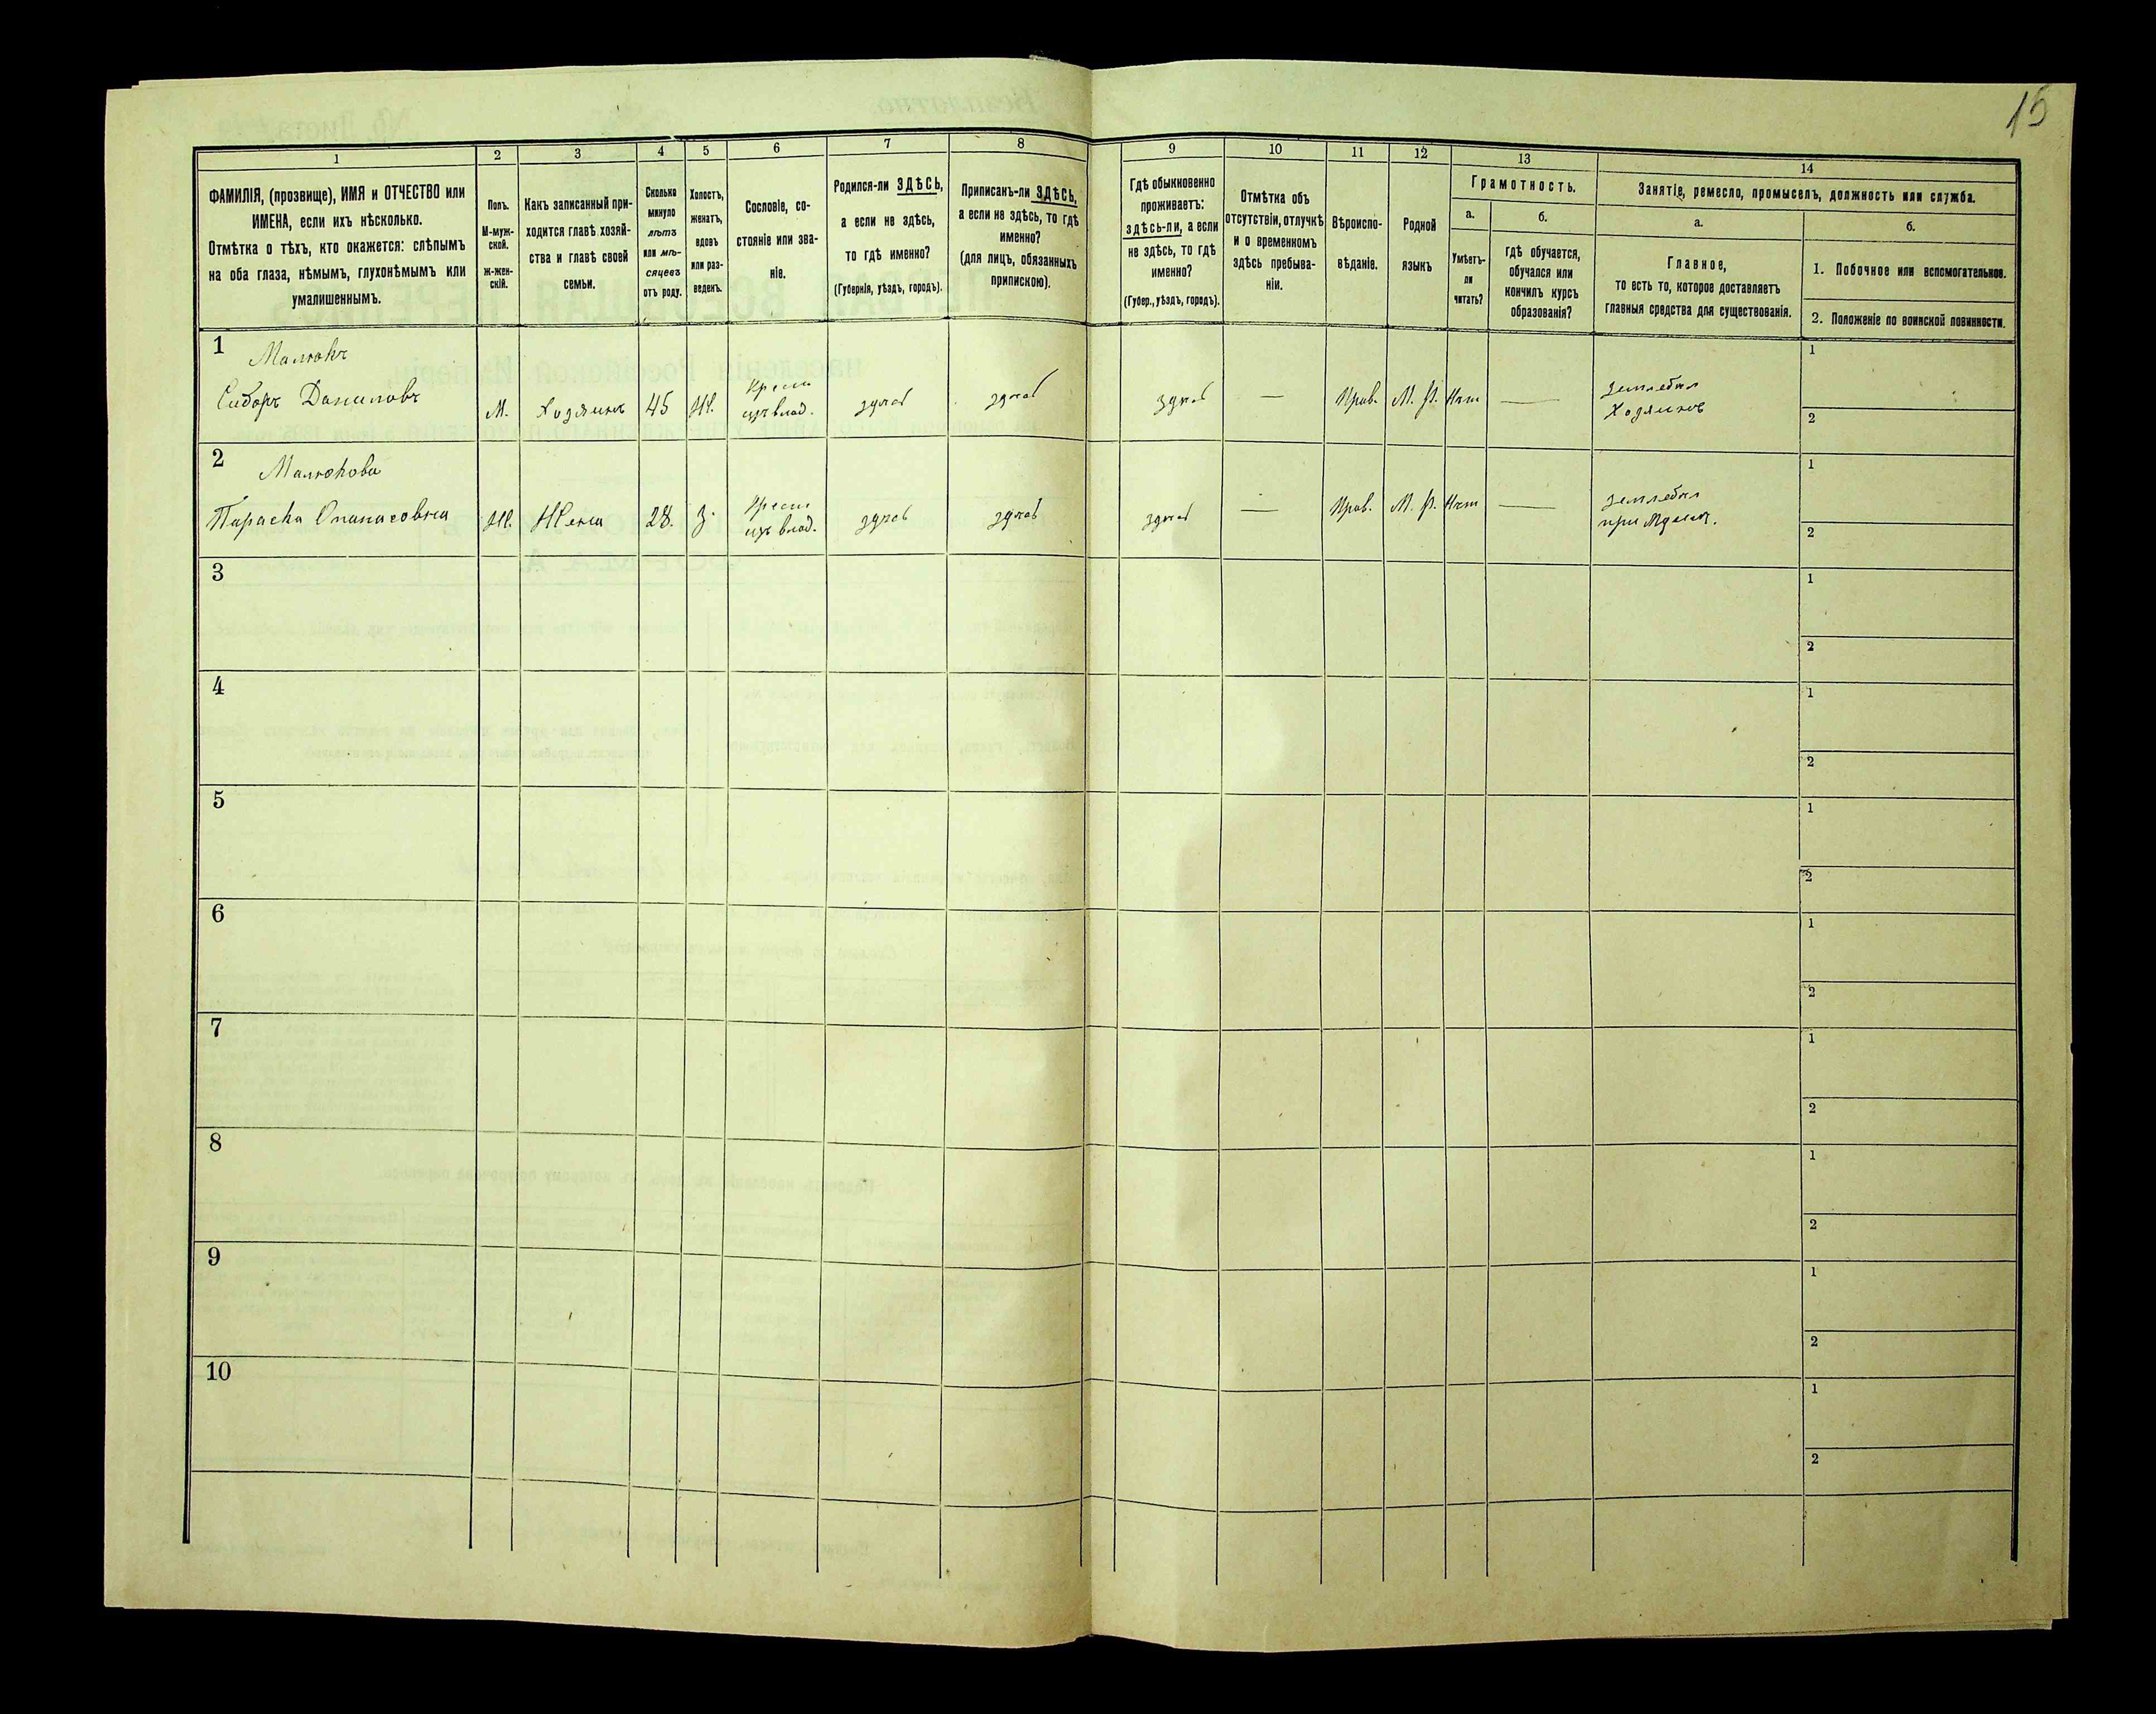 15
1 2 3 4 5 6 7 8 9 10 11 12 13 14
ФАМИЛІЯ, (прозвище), ИМЯ и ОТЧЕСТВО или
ИМЕНА, если ихъ нѣсколько.
Отмѣтка о тѣхъ, кто окажется: слѣпымъ
на оба глаза, нѣмымъ, глухонѣмымъ или
умалишеннымъ.
Полъ.
М-муж-
ской.
ж-жен-
скій.
Какъ записанный при-
ходится главѣ хозяй-
ства и главѣ своей
семьи.
Сколько
минуло
лѣтъ
или мѣ-
сяцевъ
отъ роду.
Холостъ,
женатъ,
вдовъ
или раз-
веденъ.
Сословіе, со-
стояніе или зва-
ніе.
Родился-ли ЗДѢСЬ,
а если не здѣсь,
то гдѣ именно?
(Губернія, уѣздъ, городъ).
Приписанъ-ли ЗДѢСЬ,
а если не здѣсь, то гдѣ
именно?
(для лицъ, обязанныхъ
припискою).
Гдѣ обыкновенно
проживаетъ:
здѣсь-ли, а если
не здѣсь, то гдѣ
именно?
(Губер., уѣздъ, городъ).
Отмѣтка объ
отсутствіи, отлучкѣ
и о временномъ
здѣсь пребыва-
ніи.
Вѣроиспо-
вѣданіе.
Родной
языкъ
Грамотность.
а.
Умѣетъ-
ли
читать?
б.
гдѣ обучается,
обучался или
кончилъ курсъ
образованія?
Занятіе, ремесло, промыселъ, должность или служба.
а.
Главное,
то есть то, которое доставляетъ
главныя средства для существованія.
б.
1. Побочное или вспомогательное.
2. Положеніе по воинской повинности.
1
Малюкъ
Сидоръ Даниловъ
М.
Хозяинъ
45
Ж.
Крест
изъ влад.
здѣсь
здѣсь
здѣсь
—
Прав.
М. Р.
Нѣт
—
Землед
Хозяинъ
1
2
2
Малюкова
Параска Опанасовна
Ж.
Жена
28.
З.
Крест
изъ влад.
здѣсь
здѣсь
здѣсь
—
Прав.
М. Р.
Нѣт
—
Землед
при
1
2
3
1
2
4
1
2
5
1
2
6
1
2
7
1
2
8
1
2
9
1
2
10
1
2